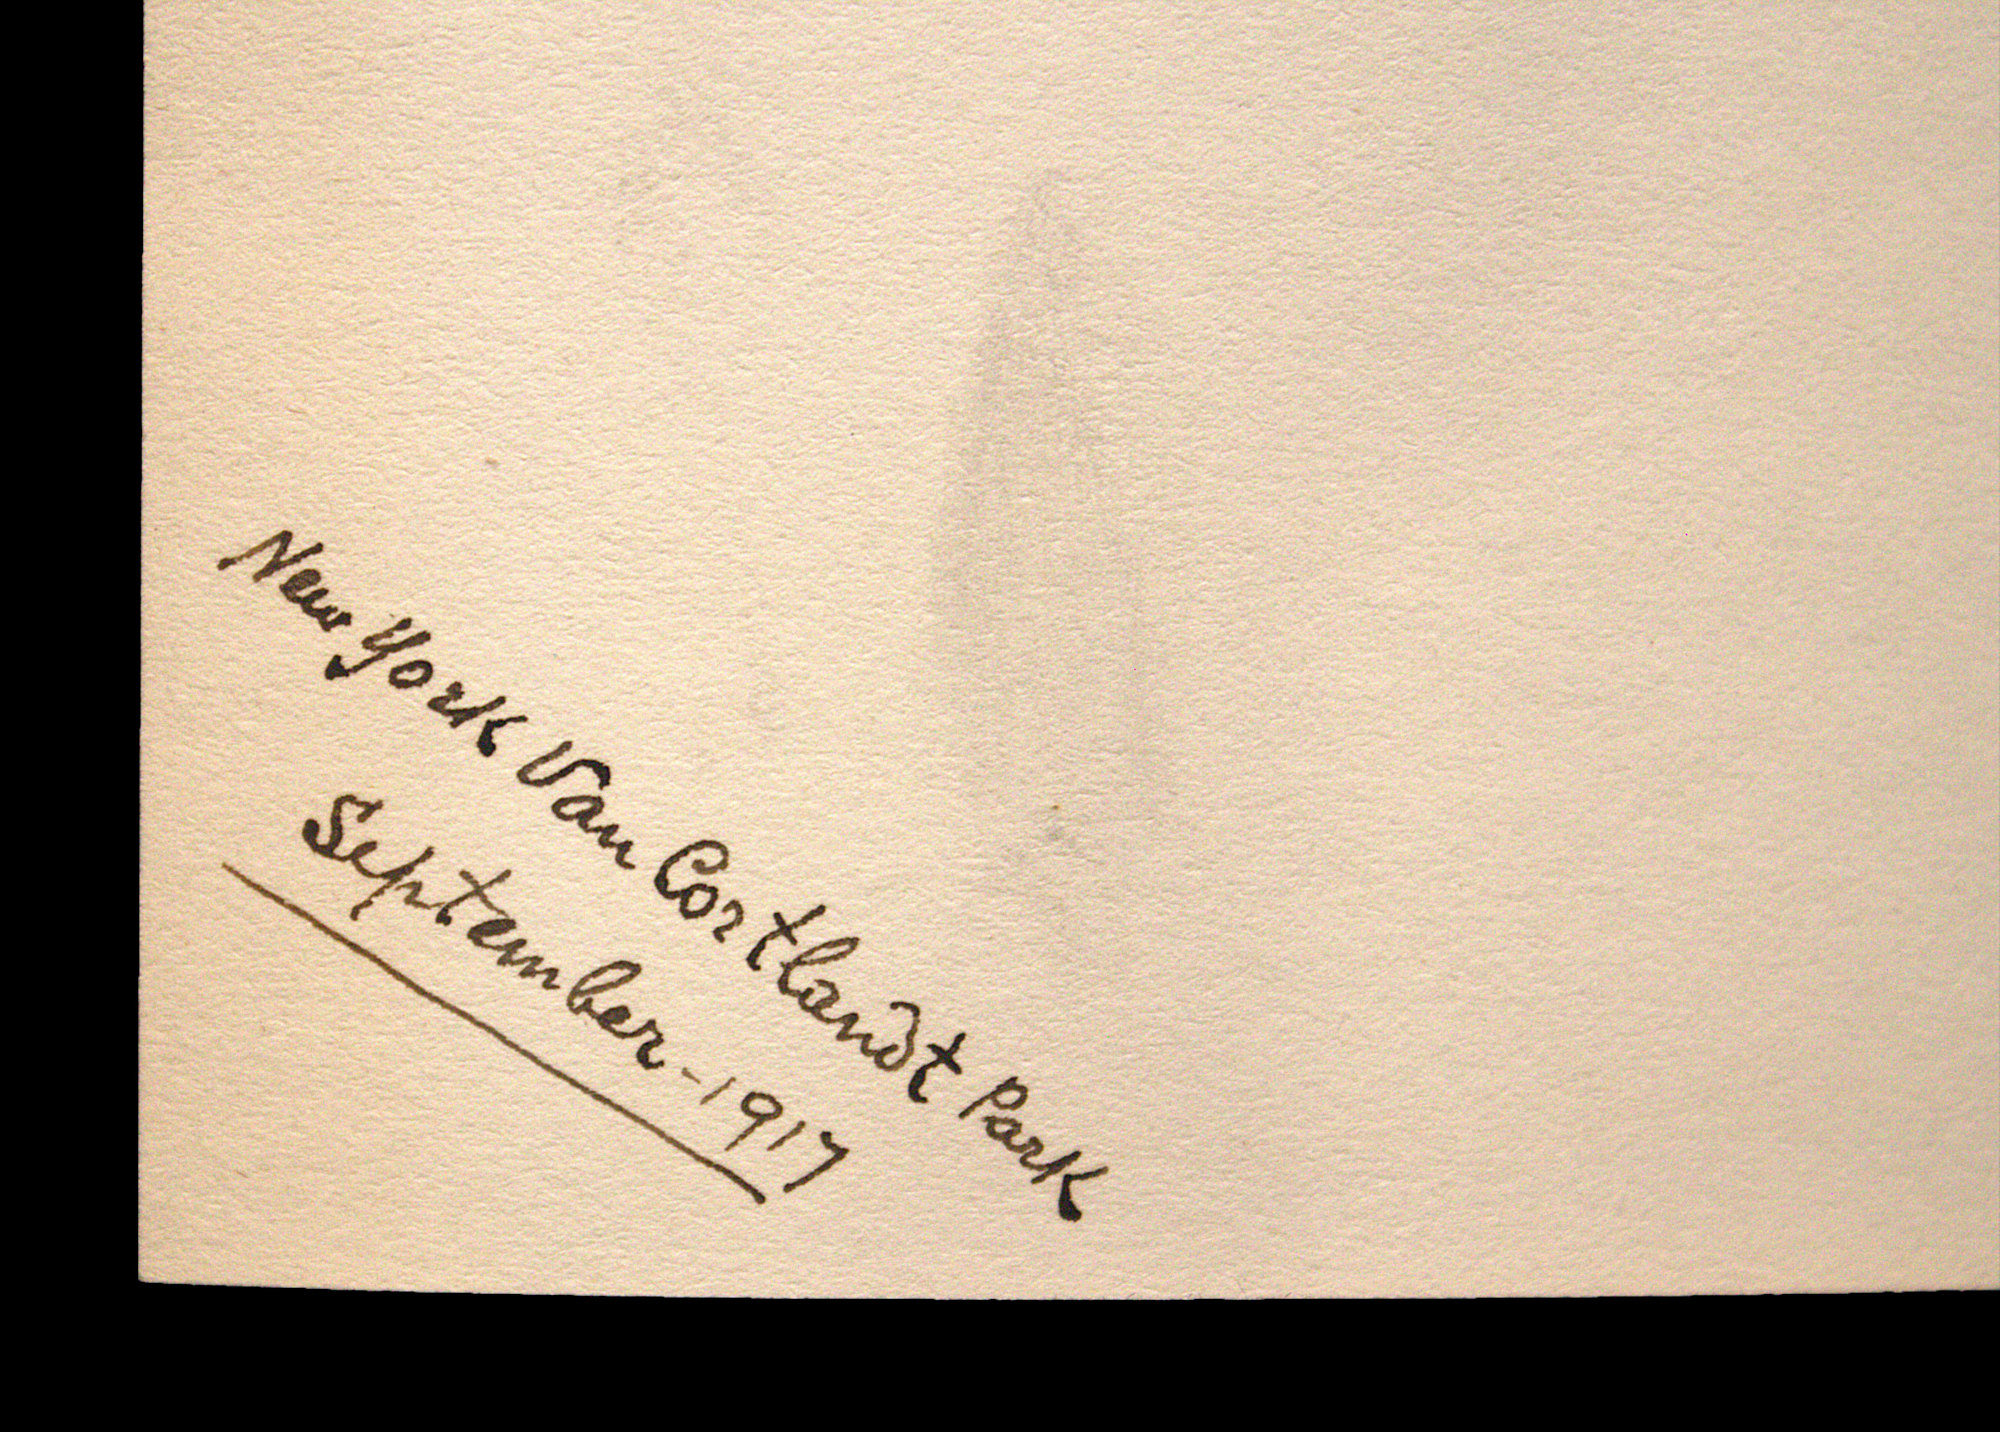 New York Van Cortlandt Park
September - 1917